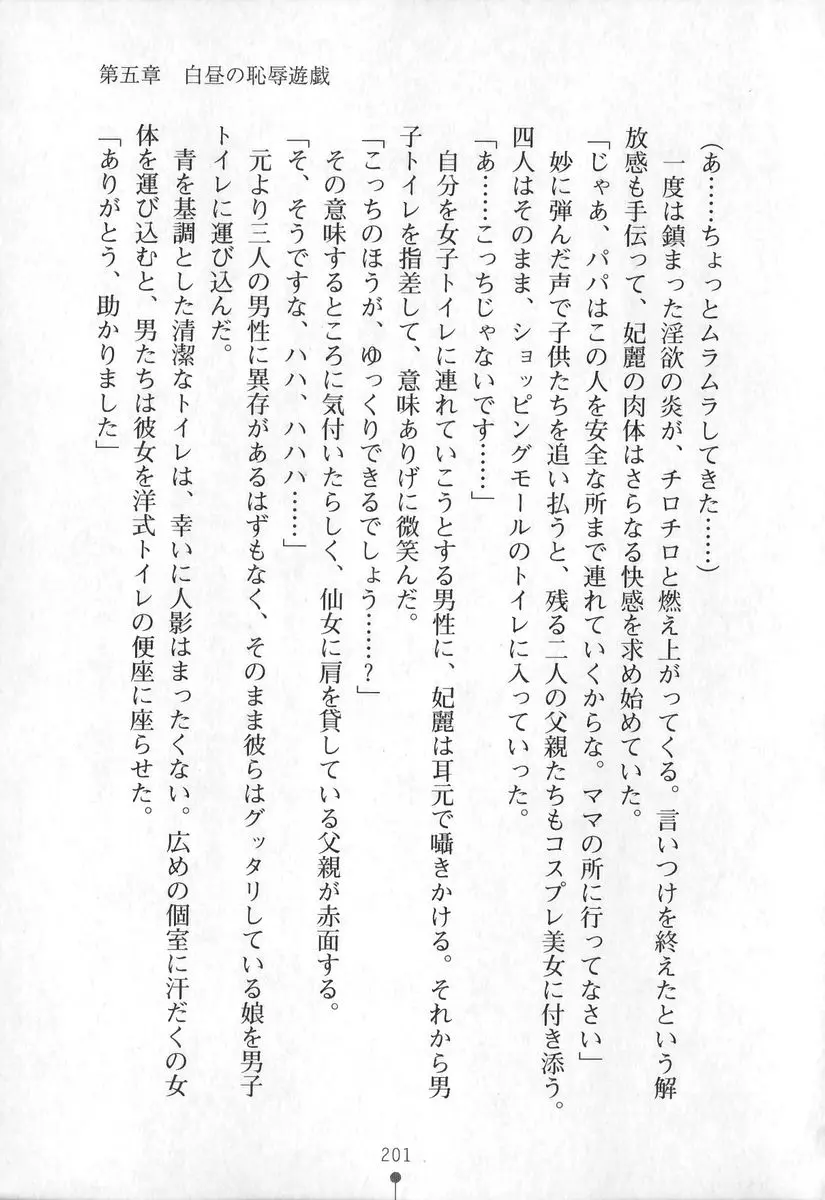 第五章　白昼の恥辱遊戯
（あ……ちょっとムラムラしてきた……）
　一度は鎮まった淫欲の炎が、チロチロと燃え上がってくる。言いつけを終えたという解
放感も手伝って、妃麗の肉体はさらなる快感を求め始めていた。
「じゃあ、パパはこの人を安全な所まで連れていくからな。ママの所に行ってなさい」
　妙に弾んだ声で子供たちを追い払うと、残る二人の父親たちもコスプレ美女に付き添う。
四人はそのまま、ショッピングモールのトイレに入っていった。
「あ……こっちじゃないです……」
　自分を女子トイレに連れていこうとする男性に、妃麗は耳元で囁きかける。それから男
子トイレを指差して、意味ありげに微笑んだ。
「こっちのほうが、ゆっくりできるでしょう……？」
　その意味するところに気付いたらしく、仙女に肩を貸している父親が赤面する。
「そ、そうですな、ハハ、ハハハ……」
　元より三人の男性に異存があるはずもなく、そのまま彼らはグッタリしている娘を男子
トイレに運び込んだ。
　青を基調とした清潔なトイレは、幸いに人影はまったくない。広めの個室に汗だくの女
体を運び込むと、男たちは彼女を洋式トイレの便座に座らせた。
「ありがとう、助かりました」
201